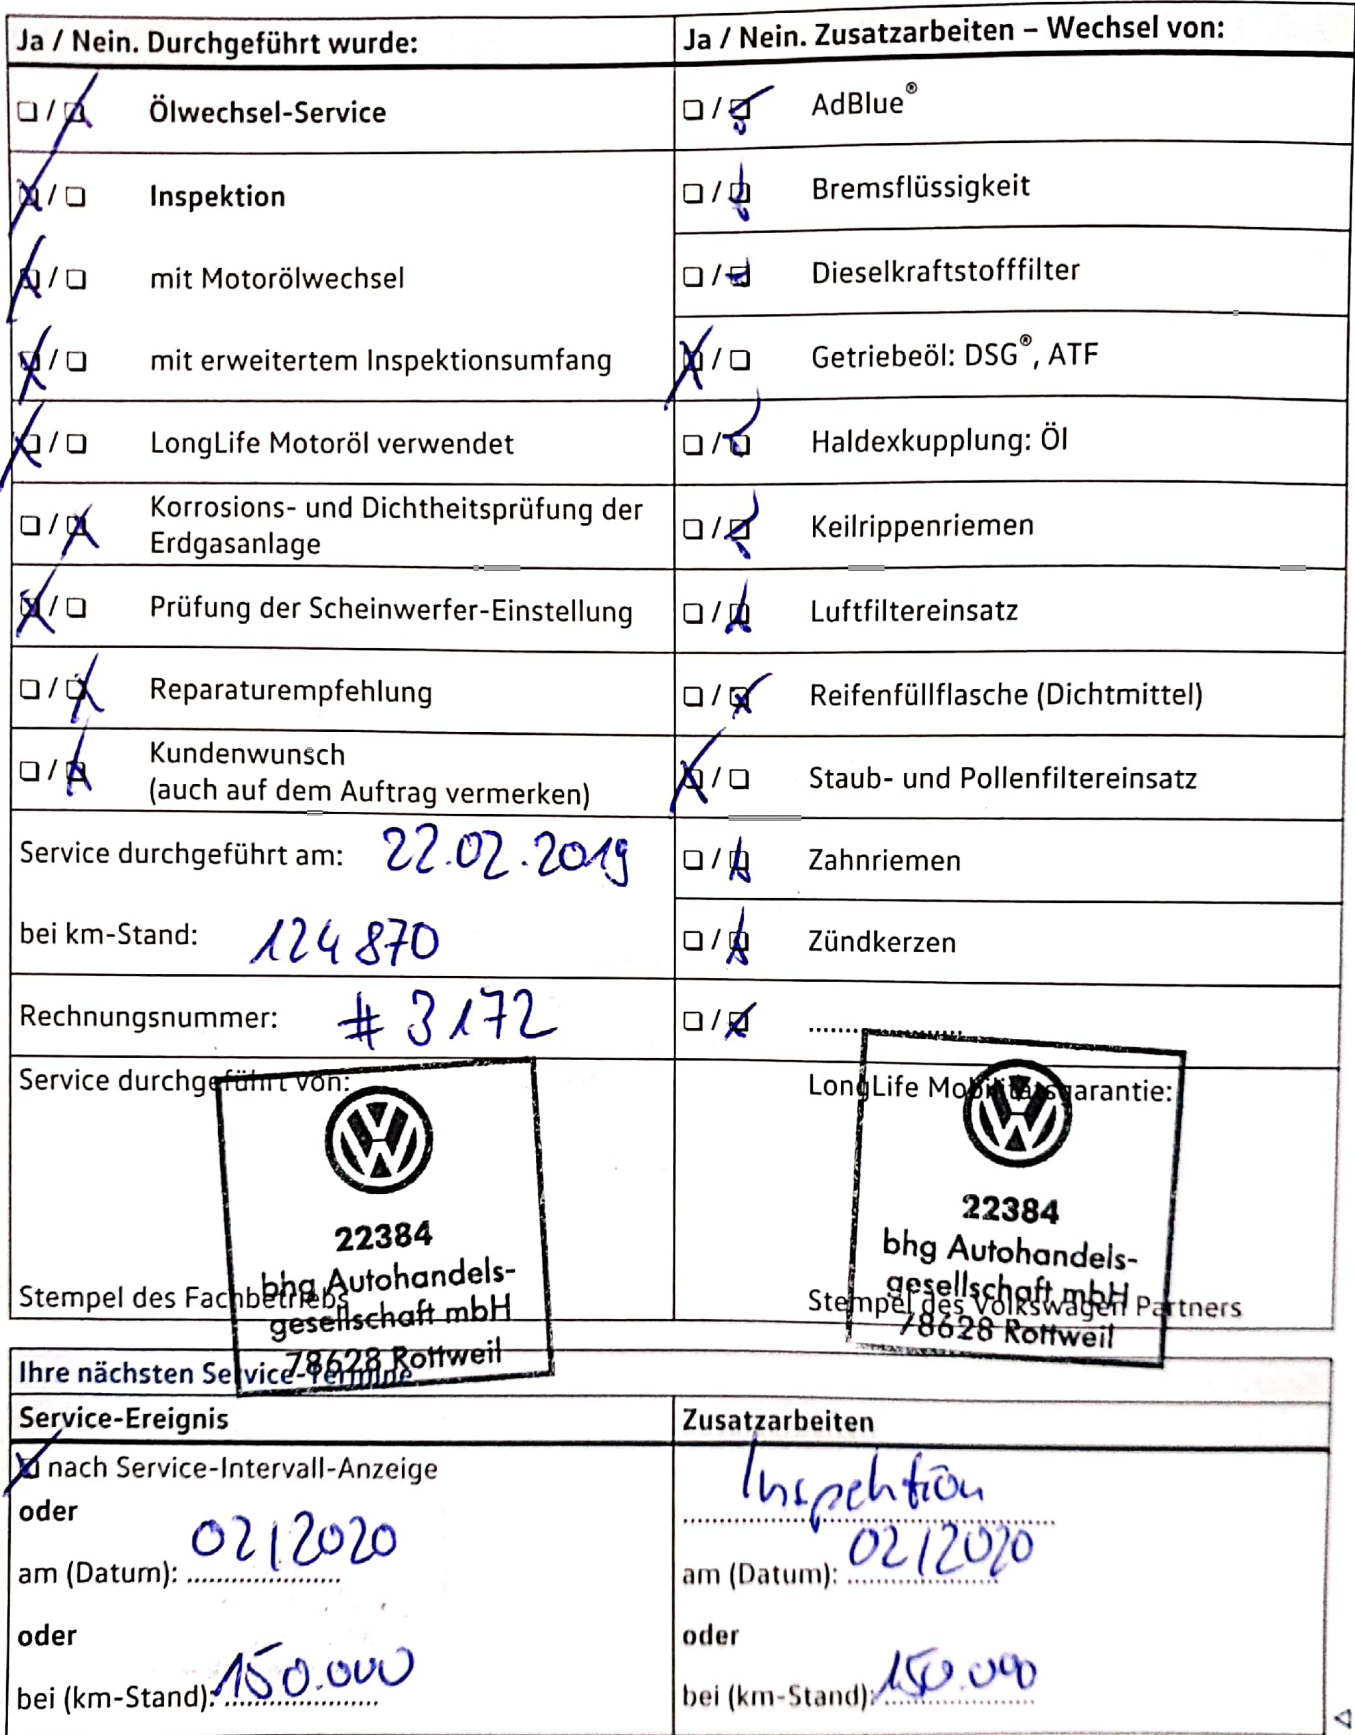 Ja / Nein. Durchgeführt wurde:
Ölwechsel-Service
Inspektion
mit Motorölwechsel
mit erweitertem Inspektionsumfang
LongLife Motoröl verwendet
Korrosions- und Dichtheitsprüfung der
Erdgasanlage
Prüfung der Scheinwerfer-Einstellung
Reparaturempfehlung
Kundenwunsch
(auch auf dem Auftrag vermerken)
Service durchgeführt am: 22.02.2019
bei km-Stand: 124 870
Rechnungsnummer: # 3172
Service durchgeführt von:
22384
bhg Autohandels-
gesellschaft mbH
78628 Rottweil
Stempel des Fachbetriebs
Ja / Nein. Zusatzarbeiten – Wechsel von:
AdBlue®
Bremsflüssigkeit
Dieselkraftstofffilter
Getriebeöl: DSG®, ATF
Haldexkupplung: Öl
Keilrippenriemen
Luftfiltereinsatz
Reifenfüllflasche (Dichtmittel)
Staub- und Pollenfiltereinsatz
Zahnriemen
Zündkerzen
LongLife Mobilitätsgarantie:
22384
bhg Autohandels-
gesellschaft mbH
78628 Rottweil
Stempel des Volkswagen Partners
Ihre nächsten Service-Termine
Service-Ereignis
nach Service-Intervall-Anzeige
oder
am (Datum): 02/2020
oder
bei (km-Stand): 150.000
Zusatzarbeiten
Inspektion
am (Datum): 02/2020
oder
bei (km-Stand): 150.000